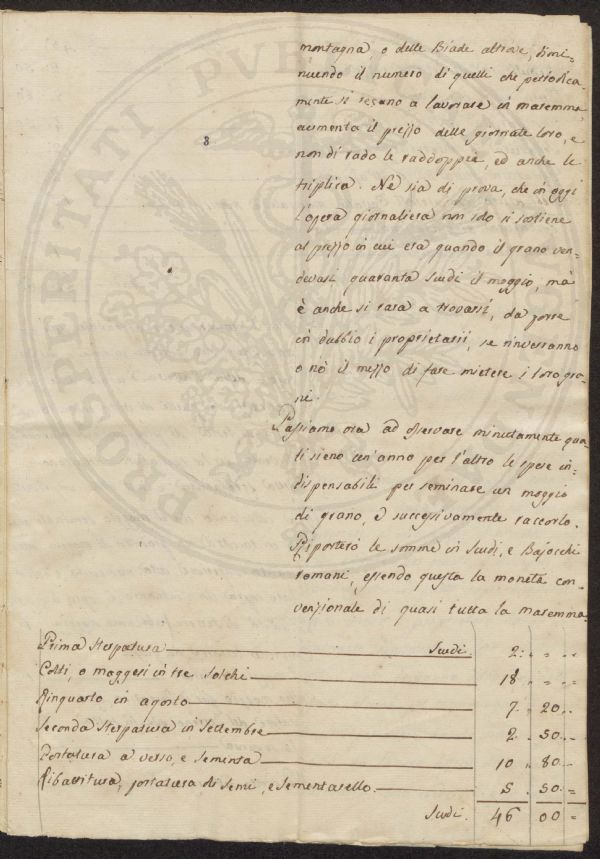 montagna, o delle Biade altrove, dimi=
nuendo il numero di quelli che periodica-
mente si recano a lavorare in maremma,
aumenta il prezzo delle giornate loro, e
non di rado le raddoppia, ed anche le
triplica. Nè sia di prova, che in oggi
l'opera giornaliera non solo si sostiene
al prezzo in cui era quando il grano ven-
devasi quaranta Scudi il moggio, mà
è anche si rara a trovarsi, da porre
in dubbio i proprietarii, se rinverranno
o nò il mezzo di fare mietere i loro gra-
ni.
Passiamo ora ad osservare minutamente qua
li sieno un'anno per l'altro le spese in-
dispensabili per seminare un moggio
di grano, e successivamente raccorlo.
Riporterò le somme in Scudi, e Bajocchi
romani, essendo questa la moneta con-
venzionale di quasi tutta la maremma.
Prima sterpatura Scudi 2: " "
Colti, o maggesi in tre solchi 18 " "
Rinquarto in agosto 7. 20 "
Seconda sterpatura in Settembre 2. 50 "
Portatura a verso, e sementa 10. 80 "
Ribattitura, portatura di semi, e sementarello 5. 50 =
Scudi. 46 00 =
PROSPERITATI PUBLICAE